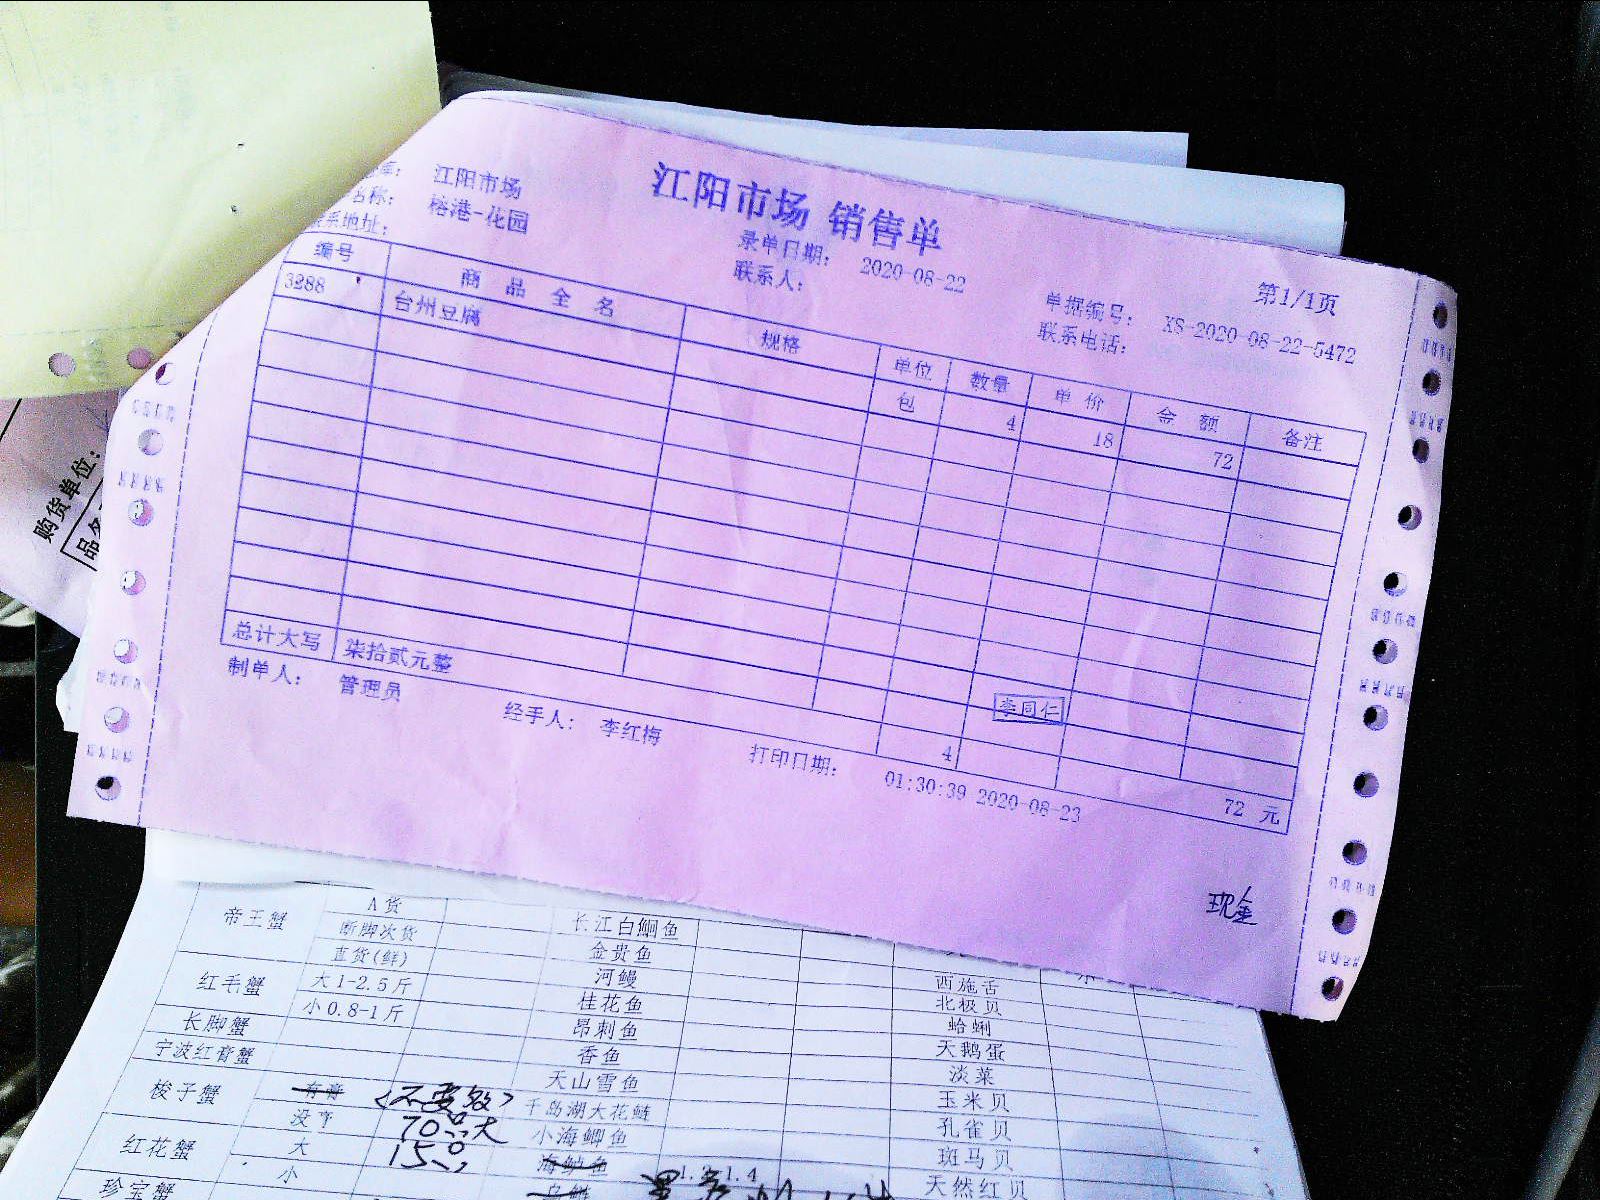 江阳市场 销售单
江阳市场
名称: 榕港-花园
联系地址:
录单日期: 2020-08-22
联系人:
第1/1页
单据编号: XS-2020-08-22-5472
联系电话:
编号 商品全名 规格 单位 数量 单价 金额 备注
3288 台州豆腐 包 4 18 72
总计大写 柒拾贰元整 4 72 元
李同仁
制单人: 管理员 经手人: 李红梅 打印日期: 01:30:39 2020-08-23
现金
购货单位:
品名
帝王蟹 A货 长江白鮰鱼
断脚次货 金贵鱼
直货(鲜) 河鳗 西施舌
红毛蟹 大1-2.5斤 桂花鱼 北极贝
小0.8-1斤 昂刺鱼 蛤蜊
长脚蟹 香鱼 天鹅蛋
宁波红膏蟹 天山雪鱼 淡菜
梭子蟹 有膏 <不要敲> 千岛湖大花鲢 玉米贝
没 小海鲫鱼 孔雀贝
红花蟹 大 海鲈鱼 斑马贝
小 天然红贝
珍宝蟹